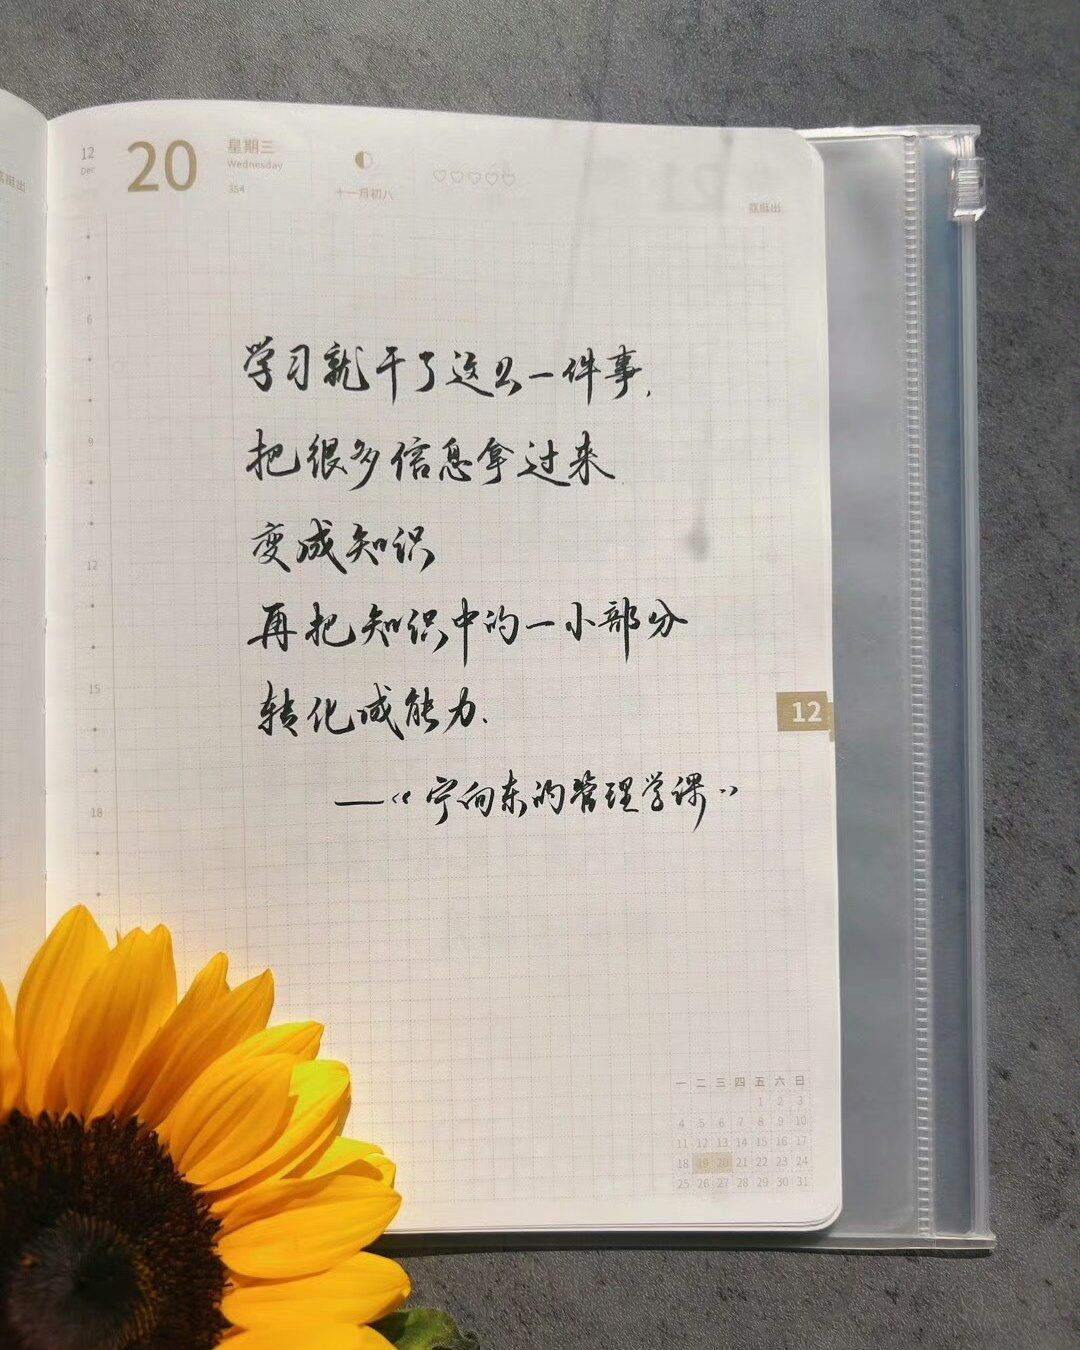 12
Dec
20
星期三
Wednesday
354
十一月初八
学习就干了这么一件事,
把很多信息拿过来
变成知识
再把知识中的一小部分
转化成能力.
——《宁向东的管理学课》
6
9
12
15
18
12
一 二 三 四 五 六 日
1 2 3
4 5 6 7 8 9 10
11 12 13 14 15 16 17
18 19 20 21 22 23 24
25 26 27 28 29 30 31